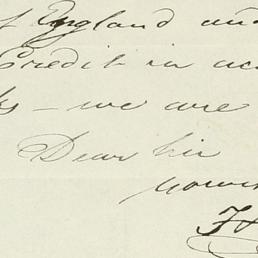 of England and
Credit in ac
— we are
Dear Sir